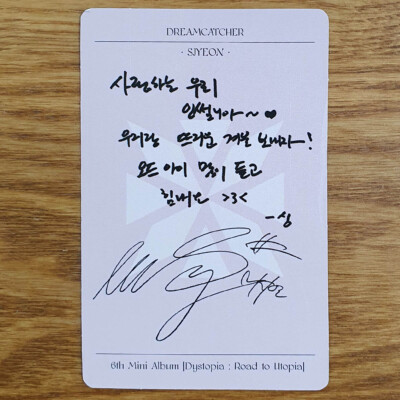 DREAMCATCHER
· SIYEON ·
사랑하는 우리
썸냐아~ ♥
우리랑 뜨거운 겨울 보내자~!
오드 아이 많이 듣고
힘내요 >3<
-싱
6th Mini Album [Dystopia : Road to Utopia]